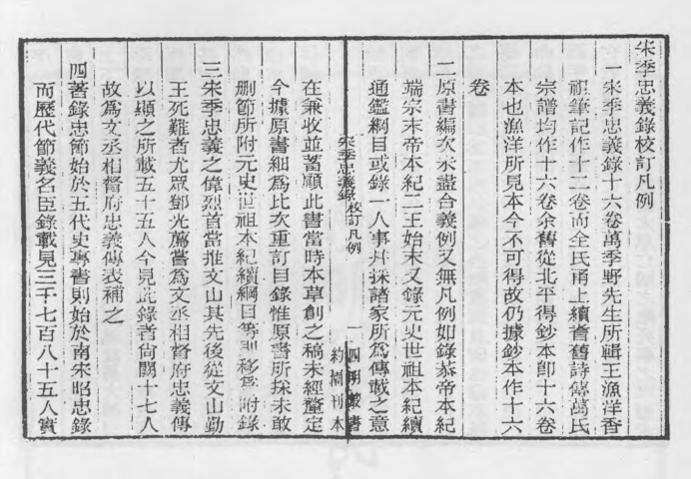 宋季忠義錄校訂凡例
一宋季忠義錄十六卷萬季野先生所輯王漁洋香
祖筆記作十二卷而全氏甬上續耆舊詩傳萬氏
宗譜均作十六卷余舊從北平得鈔本卽十六卷
本也漁洋所見本今不可得故仍據鈔本作十六
卷
二原書編次未盡合義例又無凡例如錄恭帝本紀
端宗末帝本紀二王始末又錄元史世祖本紀續
通鑑綱目或錄一人事幷採諸家所爲傳載之意
宋季忠義錄 校訂凡例 一 四明叢書 約園刊本
在兼收並蓄顧此書當時本草創之稿未經釐定
今據原書細爲比次重訂目錄惟原書所採未敢
刪節所附元史世祖本紀續綱目等則移爲附錄
三宋季忠義之偉烈首當推文山其先後從文山勤
王死難者尤眾鄧光薦嘗爲文丞相督府忠義傳
以顯之所載五十五人今見此錄者尙闕十七人
故爲文丞相督府忠義傳表補之
四著錄忠節始於五代史專書則始於南宋昭忠錄
而歷代節義名臣錄載見三千七百八十五人實